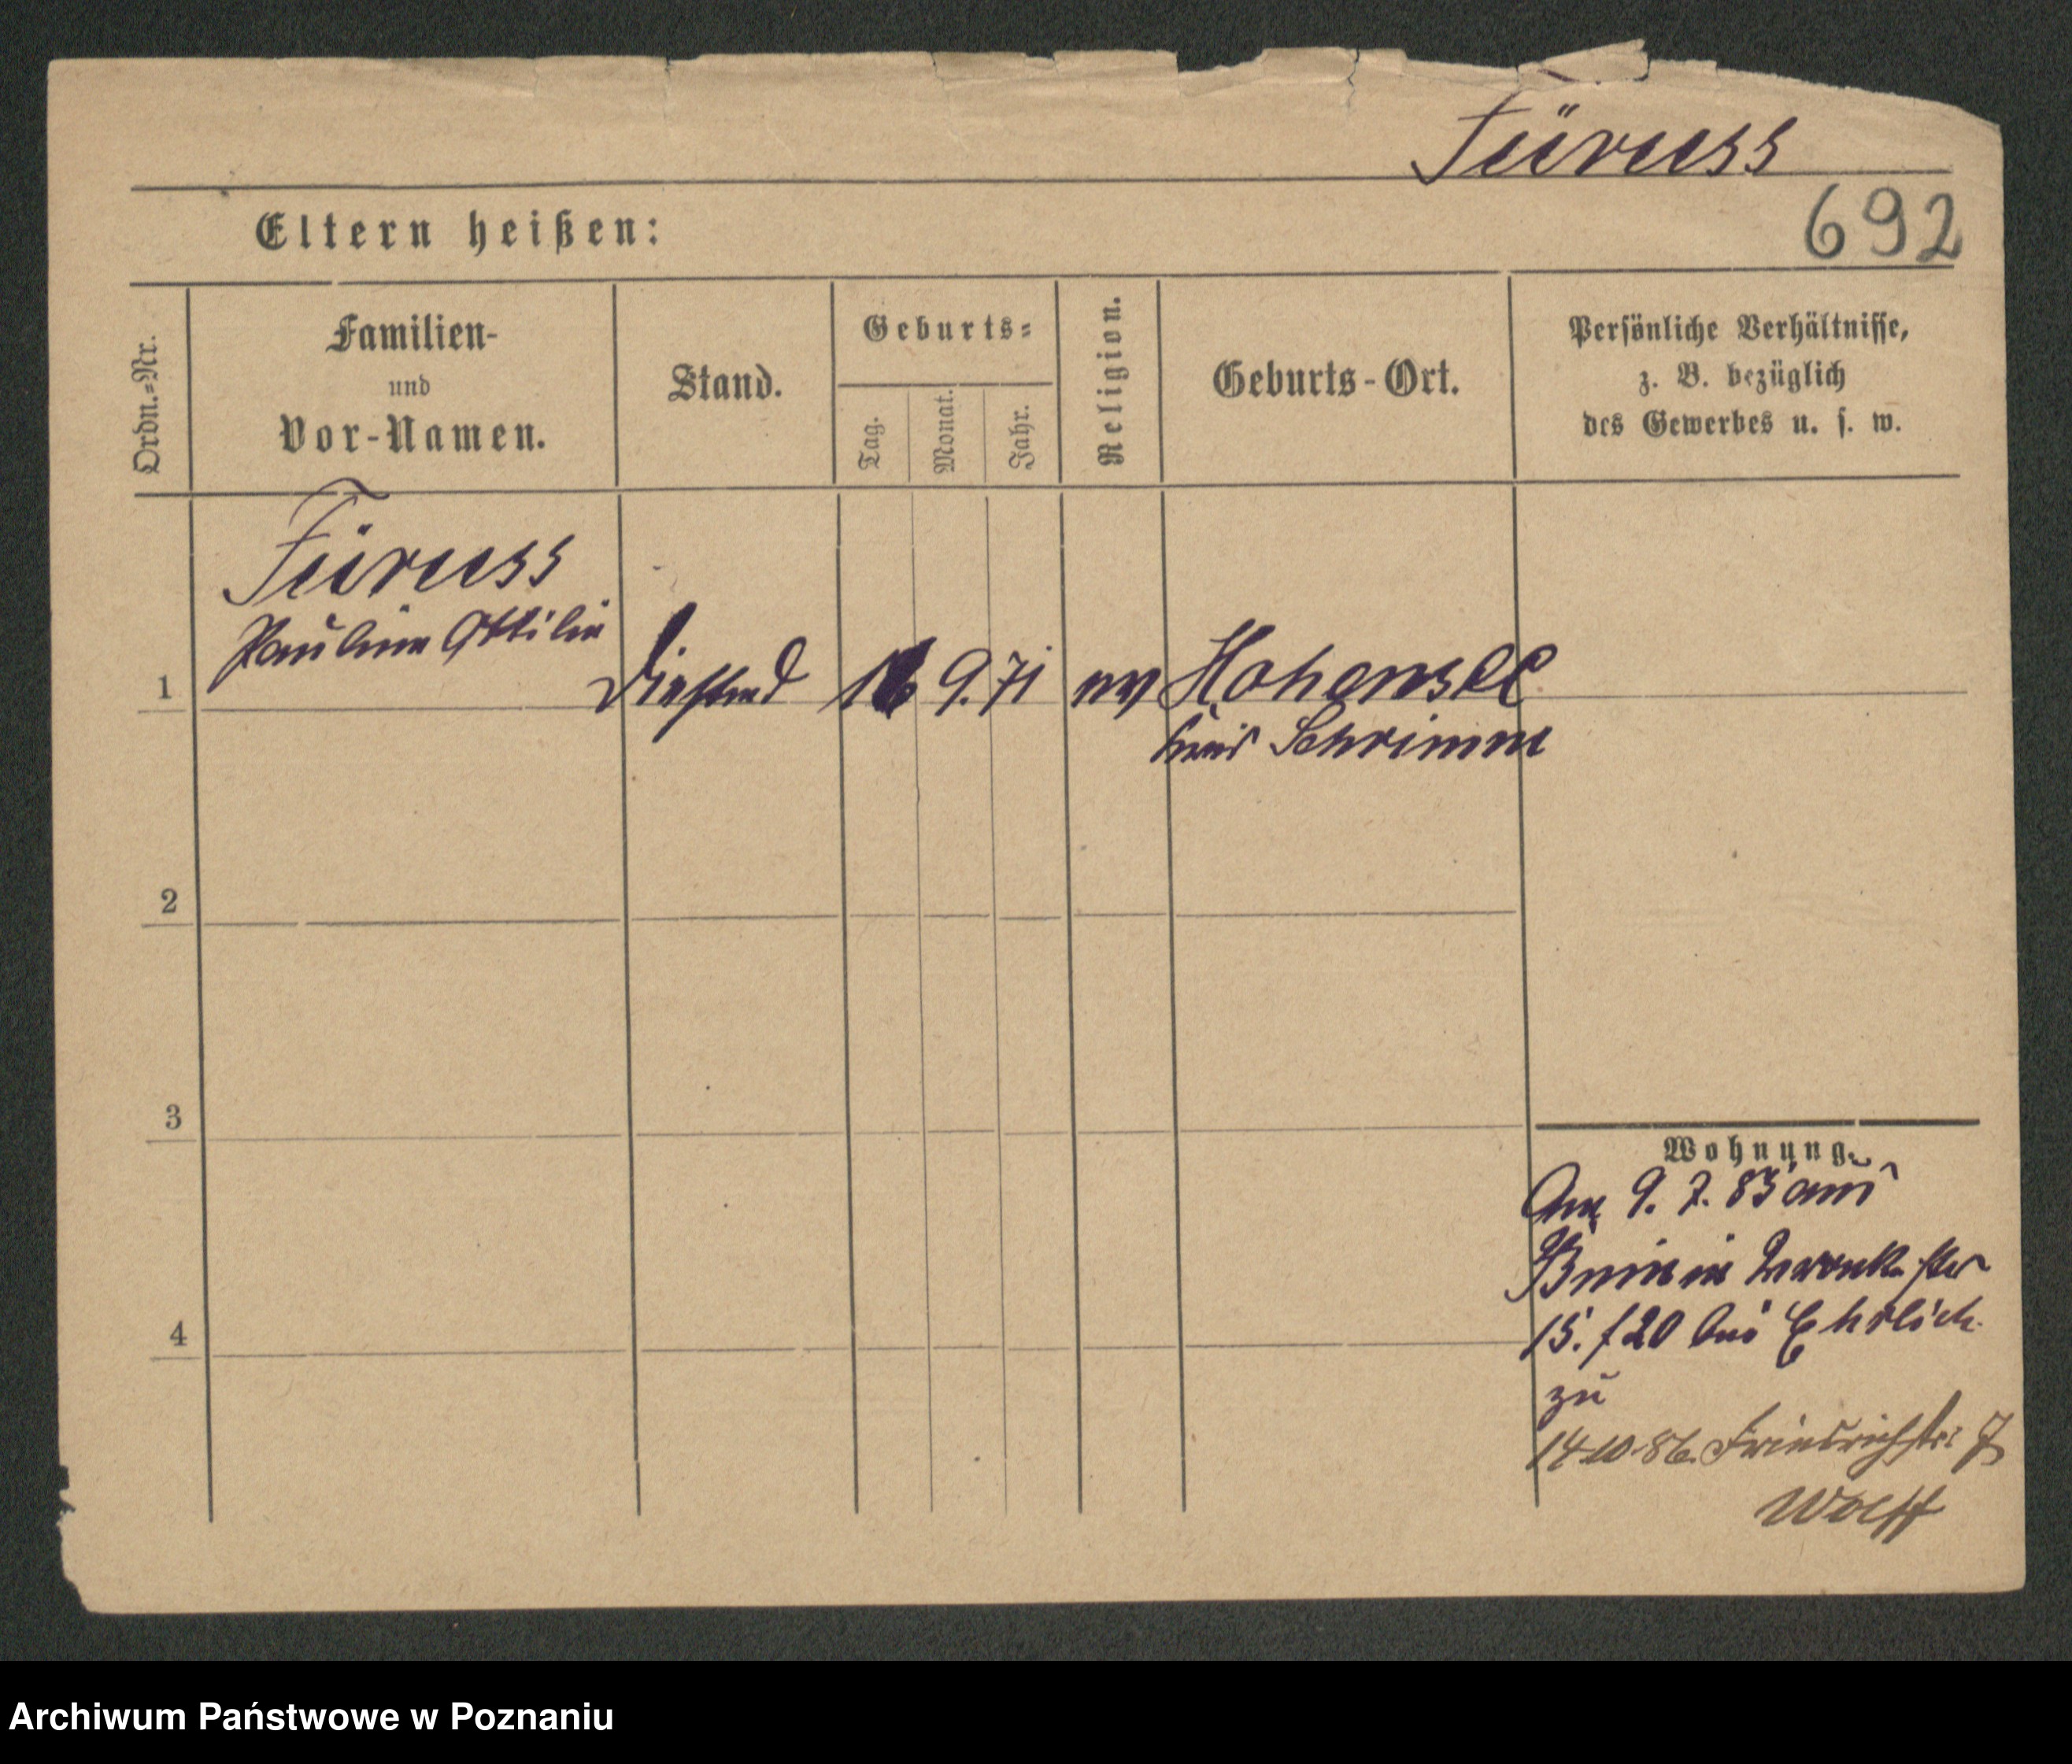 Füruss
692
Eltern heißen:
Ordn.=Nr.
Familien-
und
Vor-Namen.
Stand.
Geburts=
Tag.
Monat.
Jahr.
Religion.
Geburts-Ort.
Persönliche Verhältnisse,
z. B. bezüglich
des Gewerbes u. s. w.
Füruss
Pauline Ottilie
1
9. 71
ev
Hohensee
Kreis Schrimm
2
3
4
Wohnung.
Am 9. 7. 85 aus
Bnin in
15. f 20 bei Ehrlich
zu
14 10. 86. Friedrichstr: 7
Wolff
Archiwum Państwowe w Poznaniu